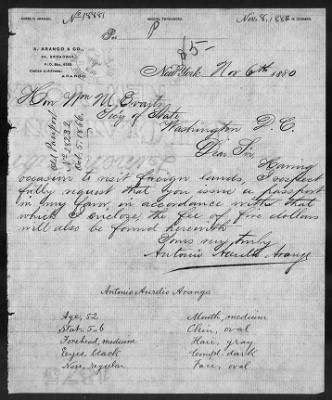 No 18881
Nov. 8, 1880
P
$5-
A. ARANGO & CO.
ARANGO
New York Nov 6th 1880
Old Passport
No 18232
Oct. 5, 1876.
Hon Wm M. Evarts
Secy of State
Washington D. C.
Dear Sir
Having
occasion to visit foreign lands, I respect
fully request that you issue a passport
in my favor, in accordance with that
which I enclose, the fee of five dollars
will also be found herewith
Yours very truly
Antonio Aurelio Arango
Antonio Aurelio Arango
Age, 52
Stat. 5-6
Forehead, medium
Eyes, black
Nose, regular
Mouth, medium
Chin, oval
Hair, gray
Compl. dark
Face, oval